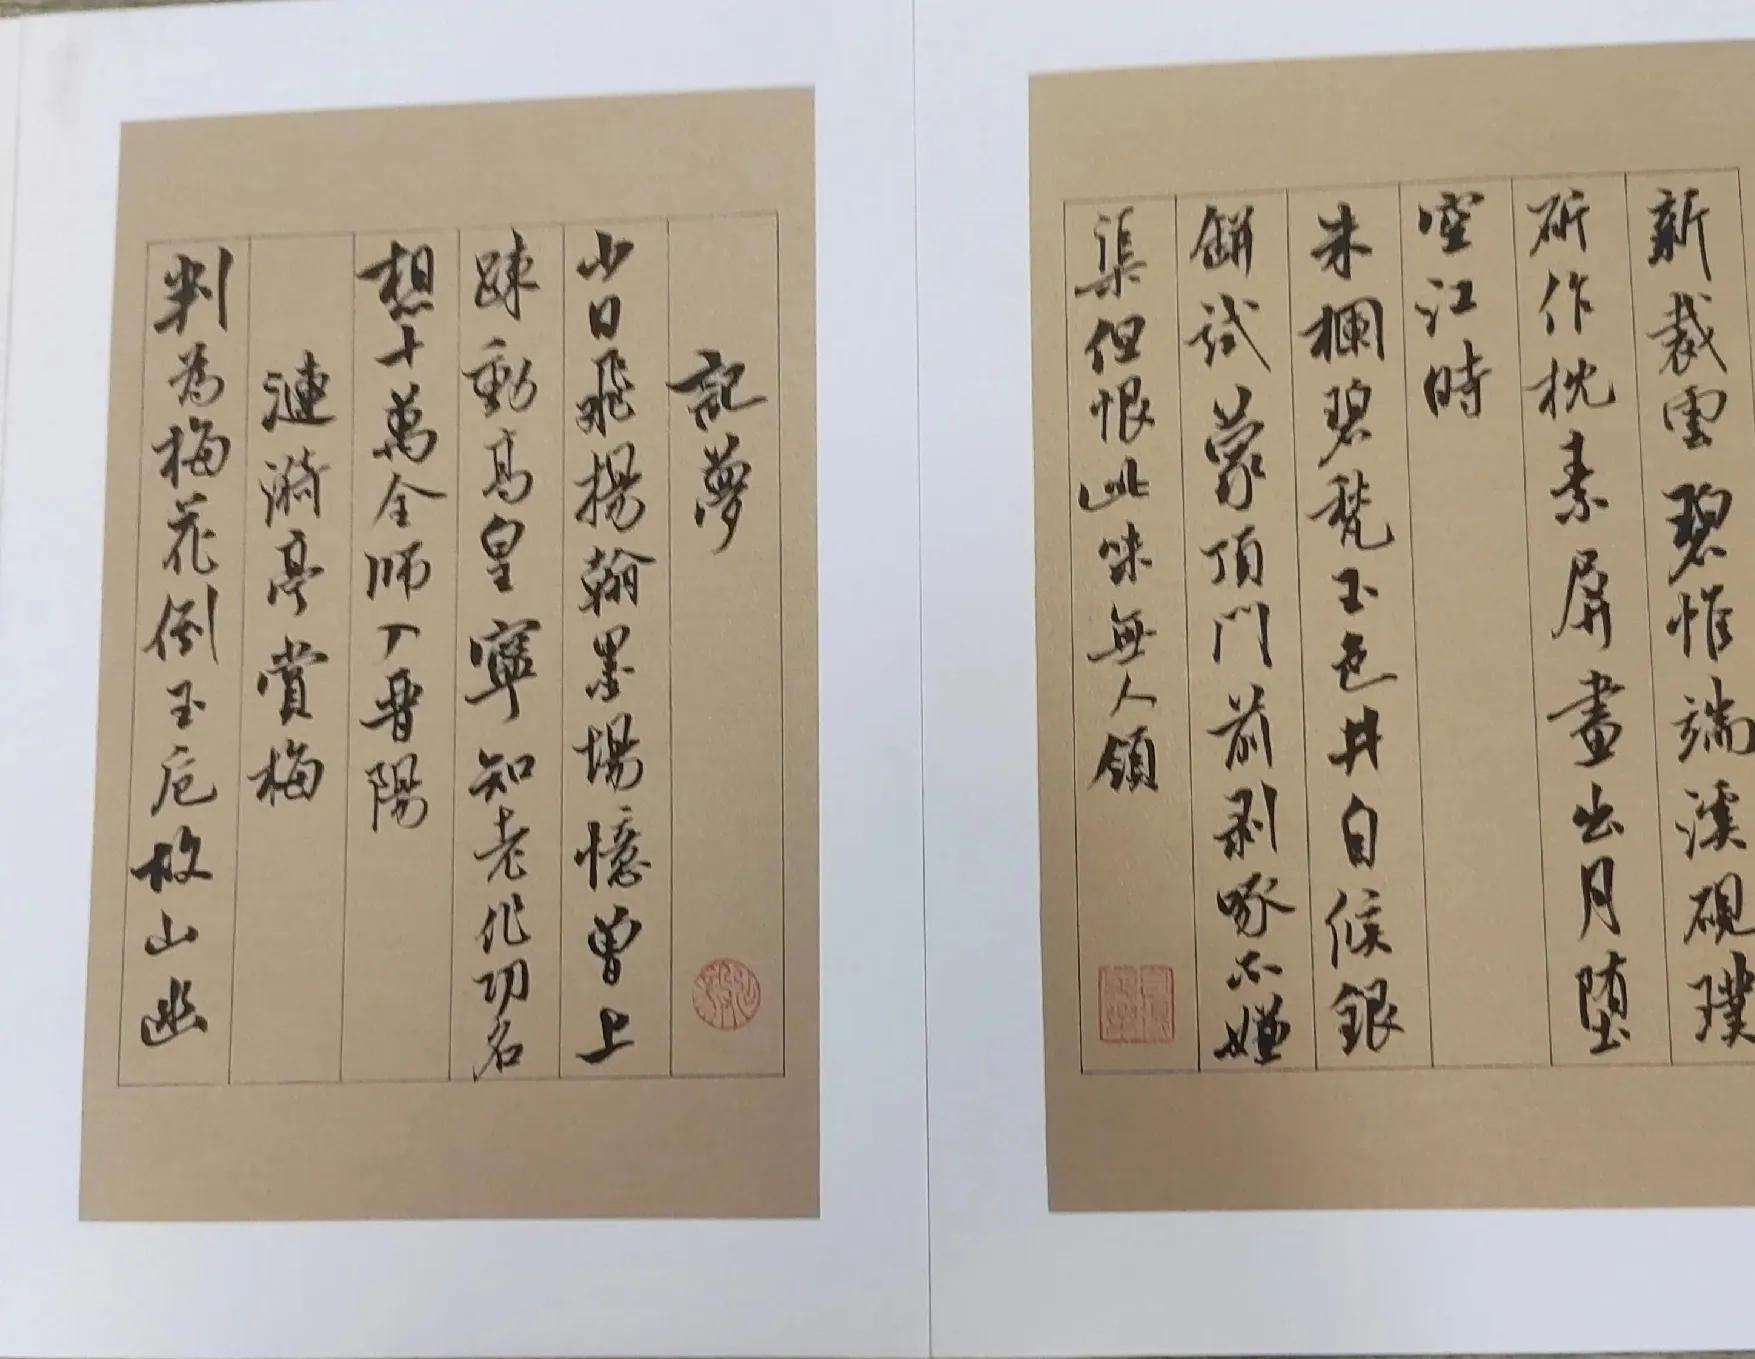 新裁雲碧帷端溪硯璞
斫作枕素屏畫出月堕
空江時
朱欄碧甃玉色井自候銀
缾試蒙頂門前剥啄不嫌
渠但恨此味無人領
記夢
少日飛揚翰墨場憶曾上
疎動高皇寧知老作功名
想十萬全師入晋陽
漣漪亭賞梅
判為梅花倒玉卮故山幽